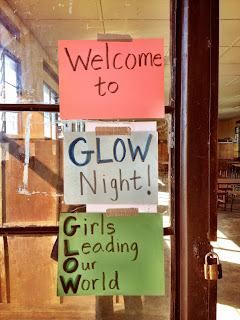 Welcome
to
GLOW
Night!
Girls
Leading
Our
World